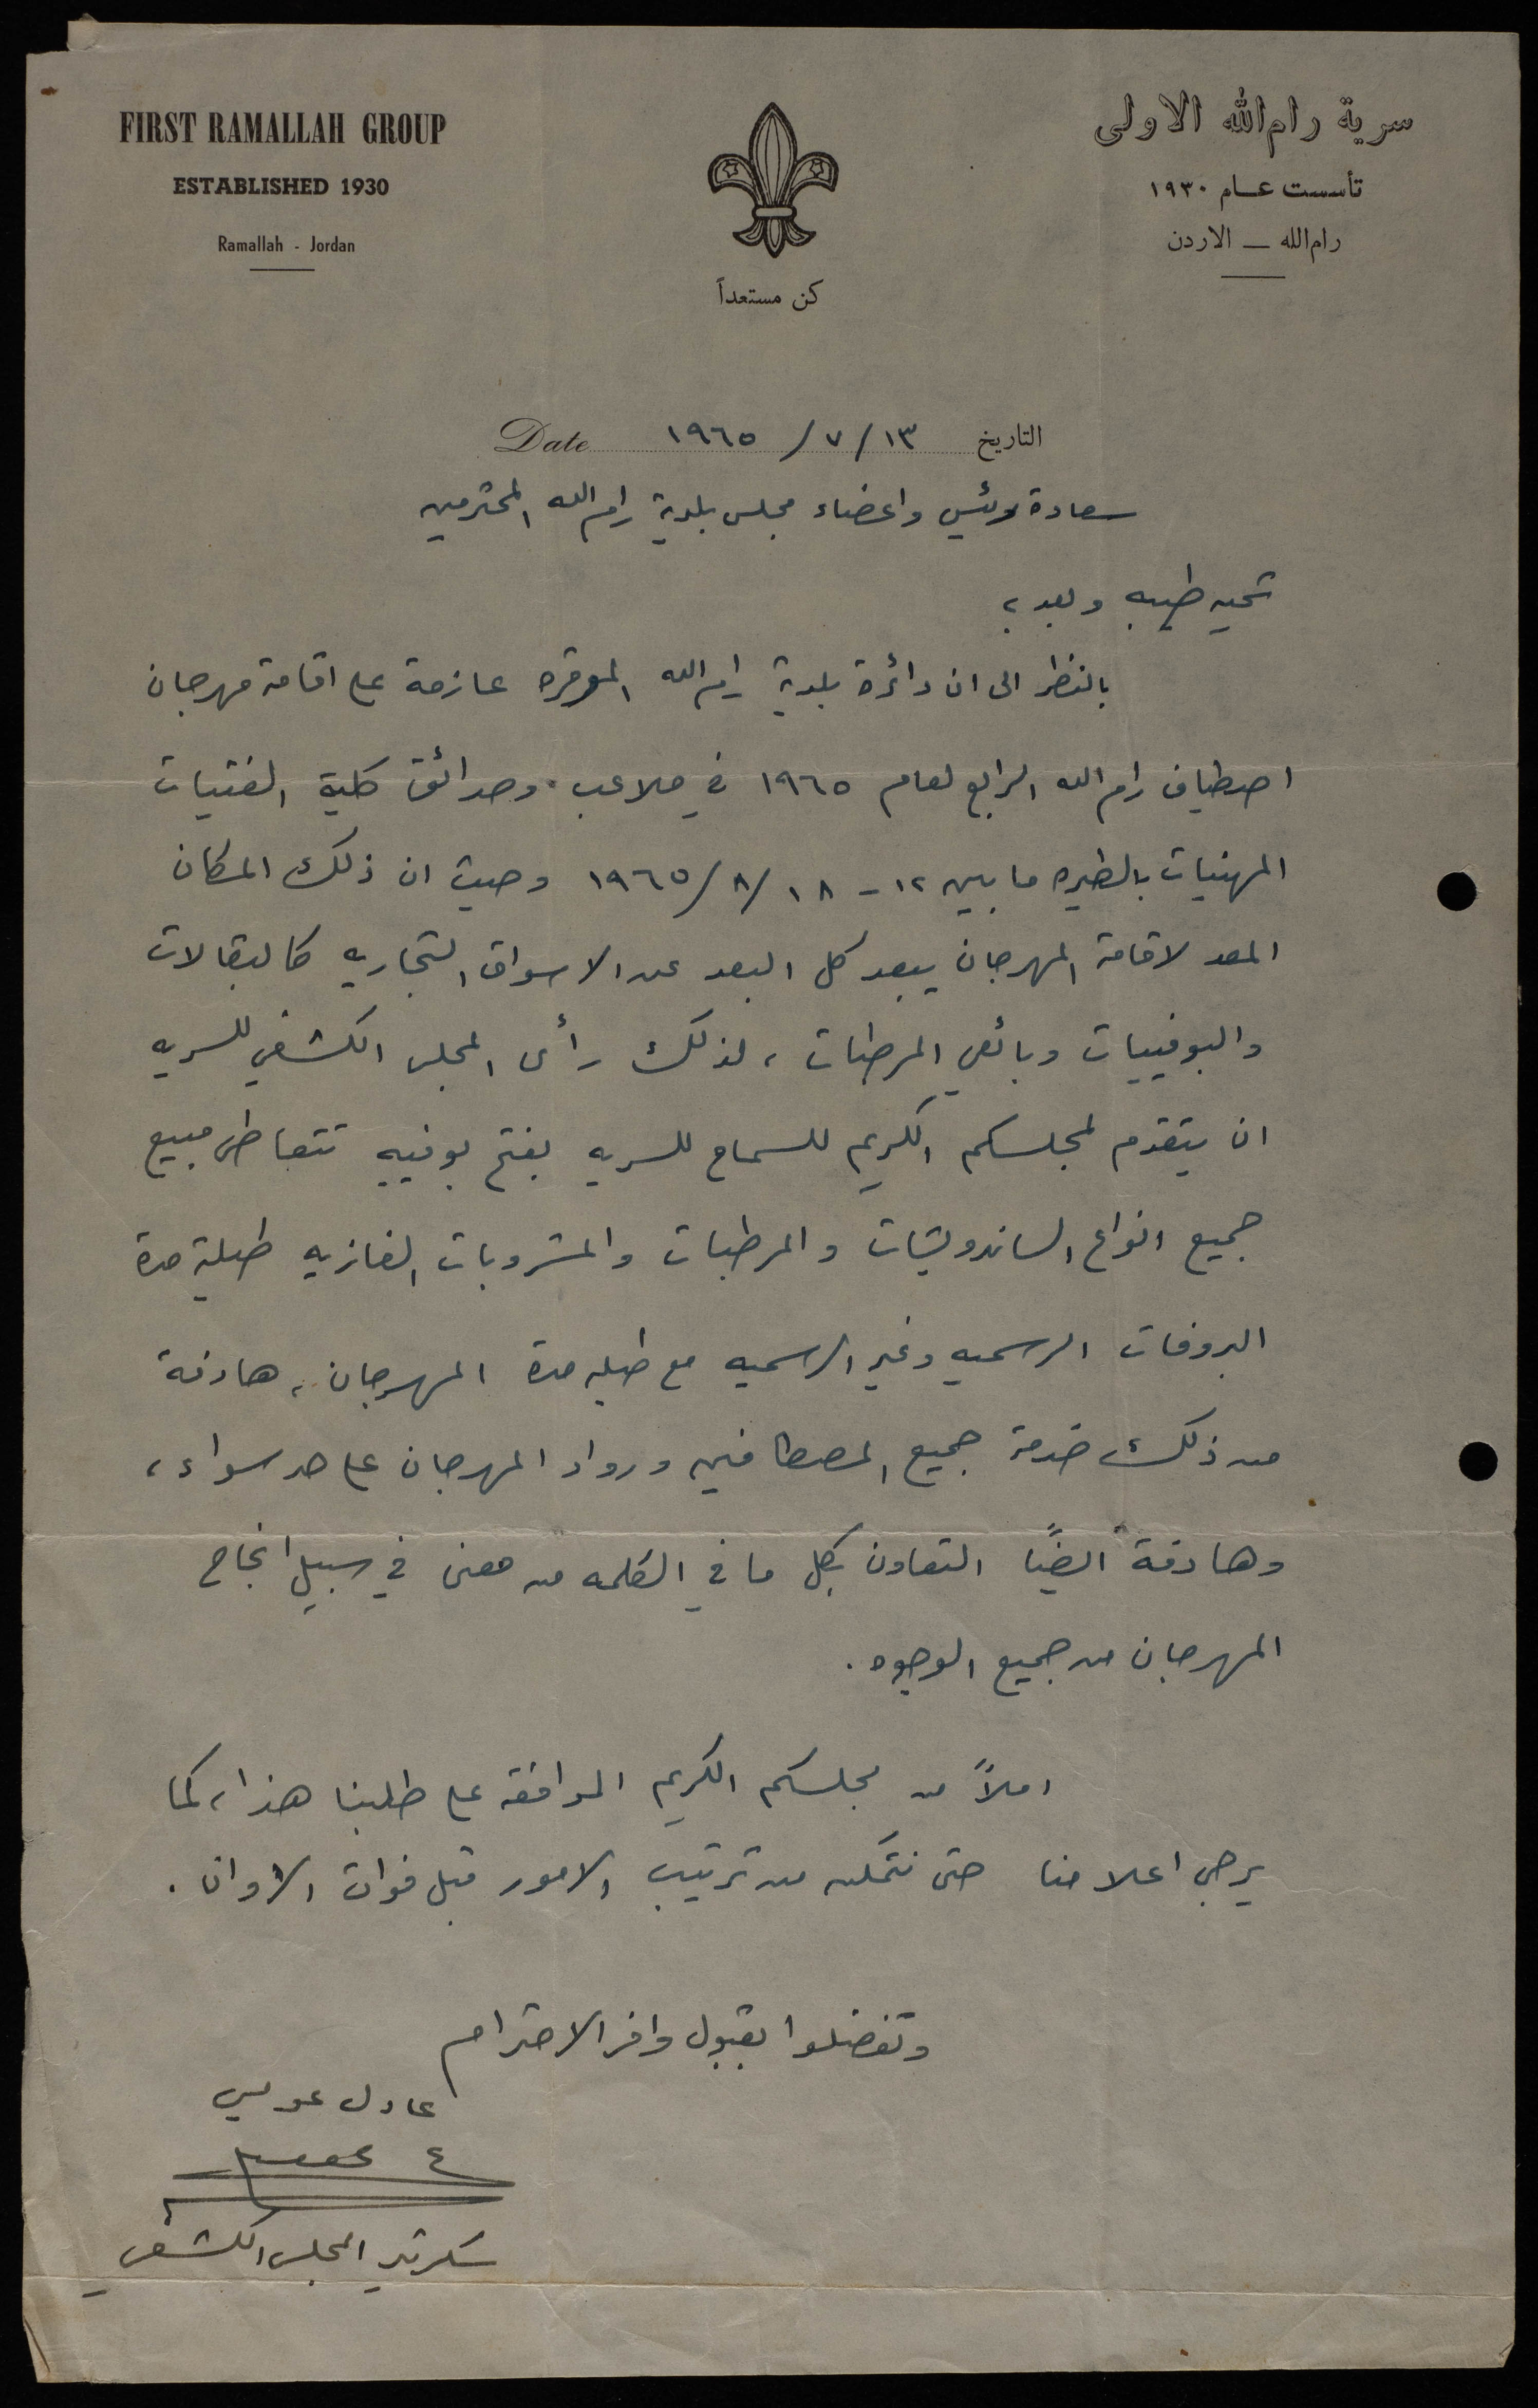 FIRST RAMALLAH GROUP
ESTABLISHED 1930
Ramallah - Jordan
سرية رام الله الاولى
تأسست عام ١٩٣٠
رام الله — الاردن
كن مستعداً
التاريخ ١٣/ ٧/ ١٩٦٥ Date
سعادة رئيس واعضاء مجلس بلدية رام الله المحترمين
تحيه طيبه وبعد ،
بالنظر الى ان دائرة بلدية رام الله الموقره عازمة على اقامة مهرجان
اصطياف رام الله الرابع لعام ١٩٦٥ في ملاعب وحدائق كلية الفتيات
المهنيات بالطيره ما بين ١٢ - ١٨/ ٨/ ١٩٦٥ وحيث ان ذلك المكان
المعد لاقامة المهرجان يبعد كل البعد عن الاسواق التجاريه كالبقالات
والبوفييات وبائعي المرطبات ، لذلك رأى المجلس الكشفي للسريه
ان يتقدم لمجلسكم الكريم للسماح للسريه بفتح بوفييه تتعاطى مبيع
جميع انواع الساندويشات والمرطبات والمشروبات الغازيه طيلة مدة
البروفات الرسميه وغير الرسميه مع طيله مدة المهرجان ، هادفة
من ذلك خدمة جميع المصطافين ورواد المهرجان على حد سواء ،
وهادفة ايضًا التعاون بكل ما في الكلمه من معنى في سبيل انجاح
المهرجان من جميع الوجوه .
املاً من مجلسكم الكريم الموافقه على طلبنا هذا ، كما
يرجى اعلامنا حتى نتمكن من ترتيب الامور قبل فوات الاوان .
وتفضلوا بقبول وافر الاحترام
عادل عويس
سكرتير المجلس الكشفي